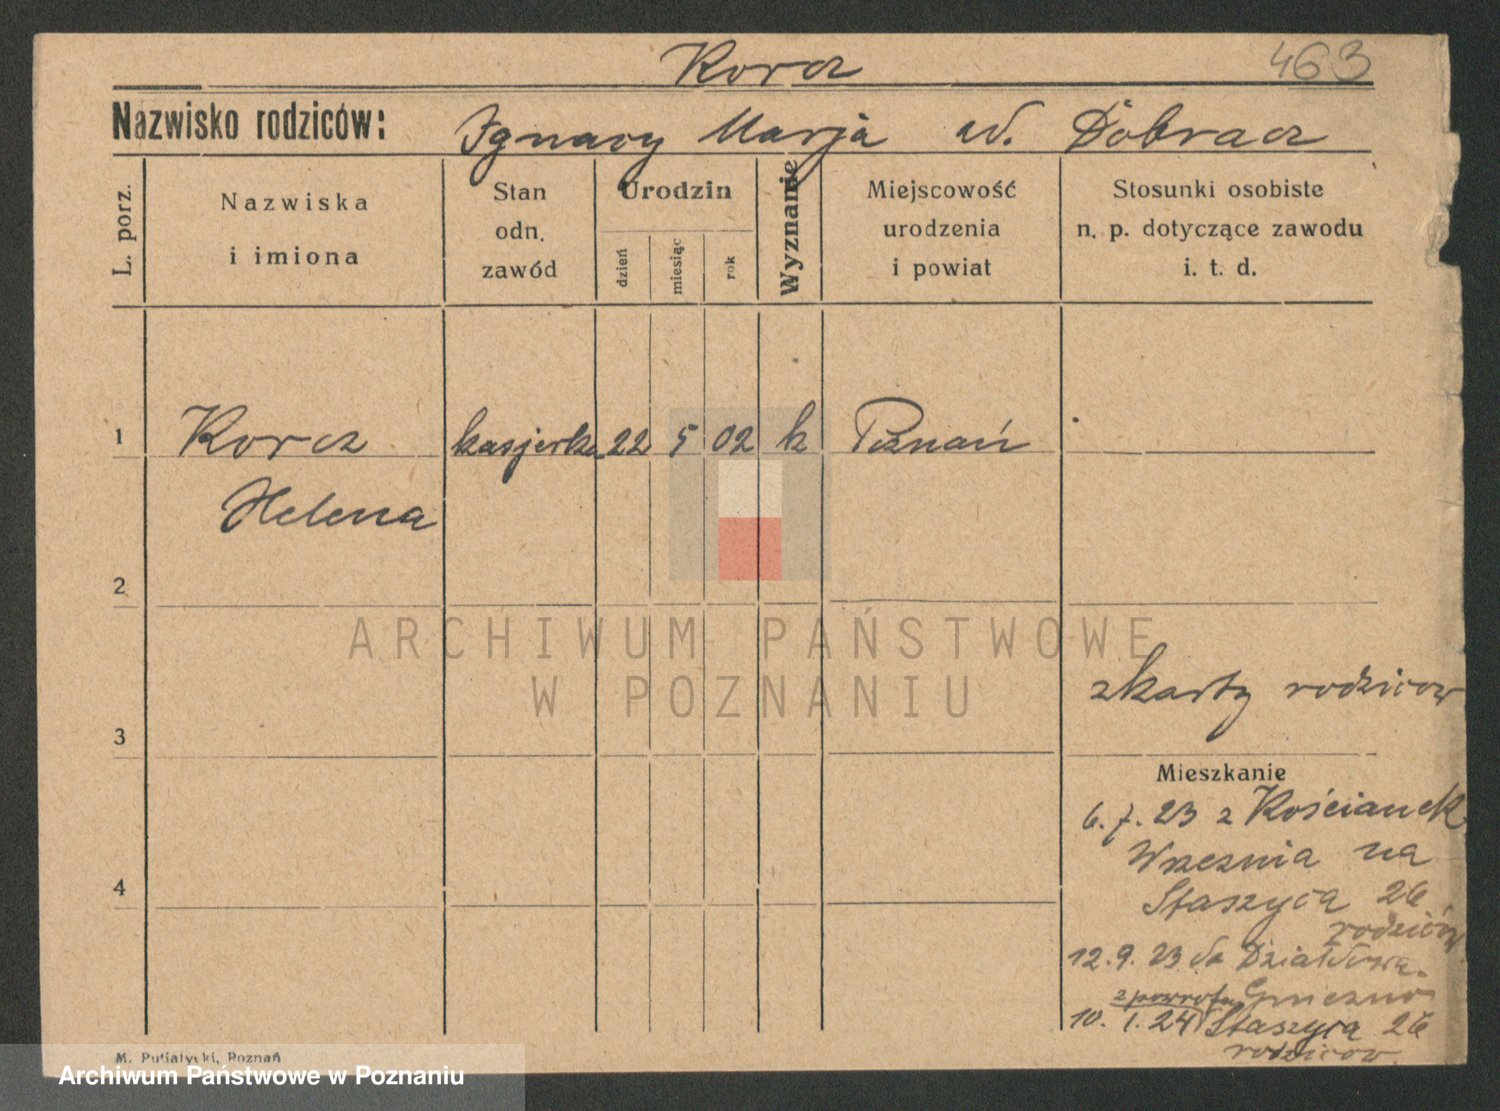 Korcz 463
Nazwisko rodziców: Ignacy Marja ud. Dobracz
L. porz.
Nazwiska
i imiona
Stan
odn.
zawód
Urodzin
dzień
miesiąc
rok
Wyznanie
Miejscowość
urodzenia
i powiat
Stosunki osobiste
n. p. dotyczące zawodu
i. t. d.
1 Korcz kasjerka 22 5 02 k Poznań
Helena
2
ARCHIWUM PAŃSTWOWE
W POZNANIU
z karty rodziców
3
Mieszkanie
6. 7. 23 z Kościanek
Wrzesnia na
Staszyca 26
rodziców
4
12. 9. 23 do Działdowa
z powrotu Gniezno
10. 1. 24 Staszyca 26
rodziców
M. Putiatycki, Poznań
Archiwum Państwowe w Poznaniu